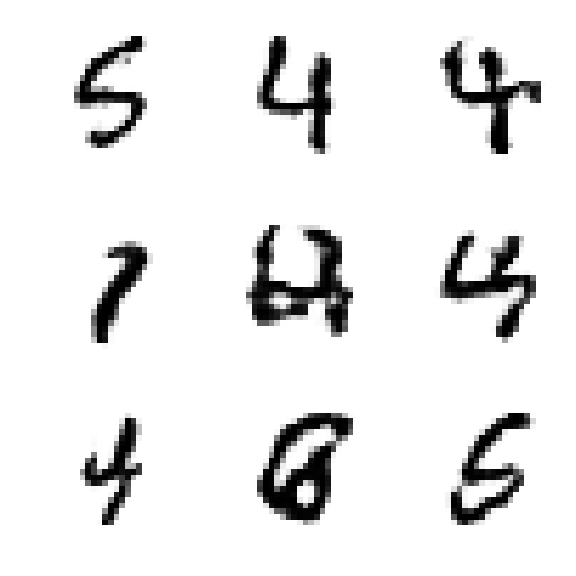 5 4 4
7 4 4
4 6 5